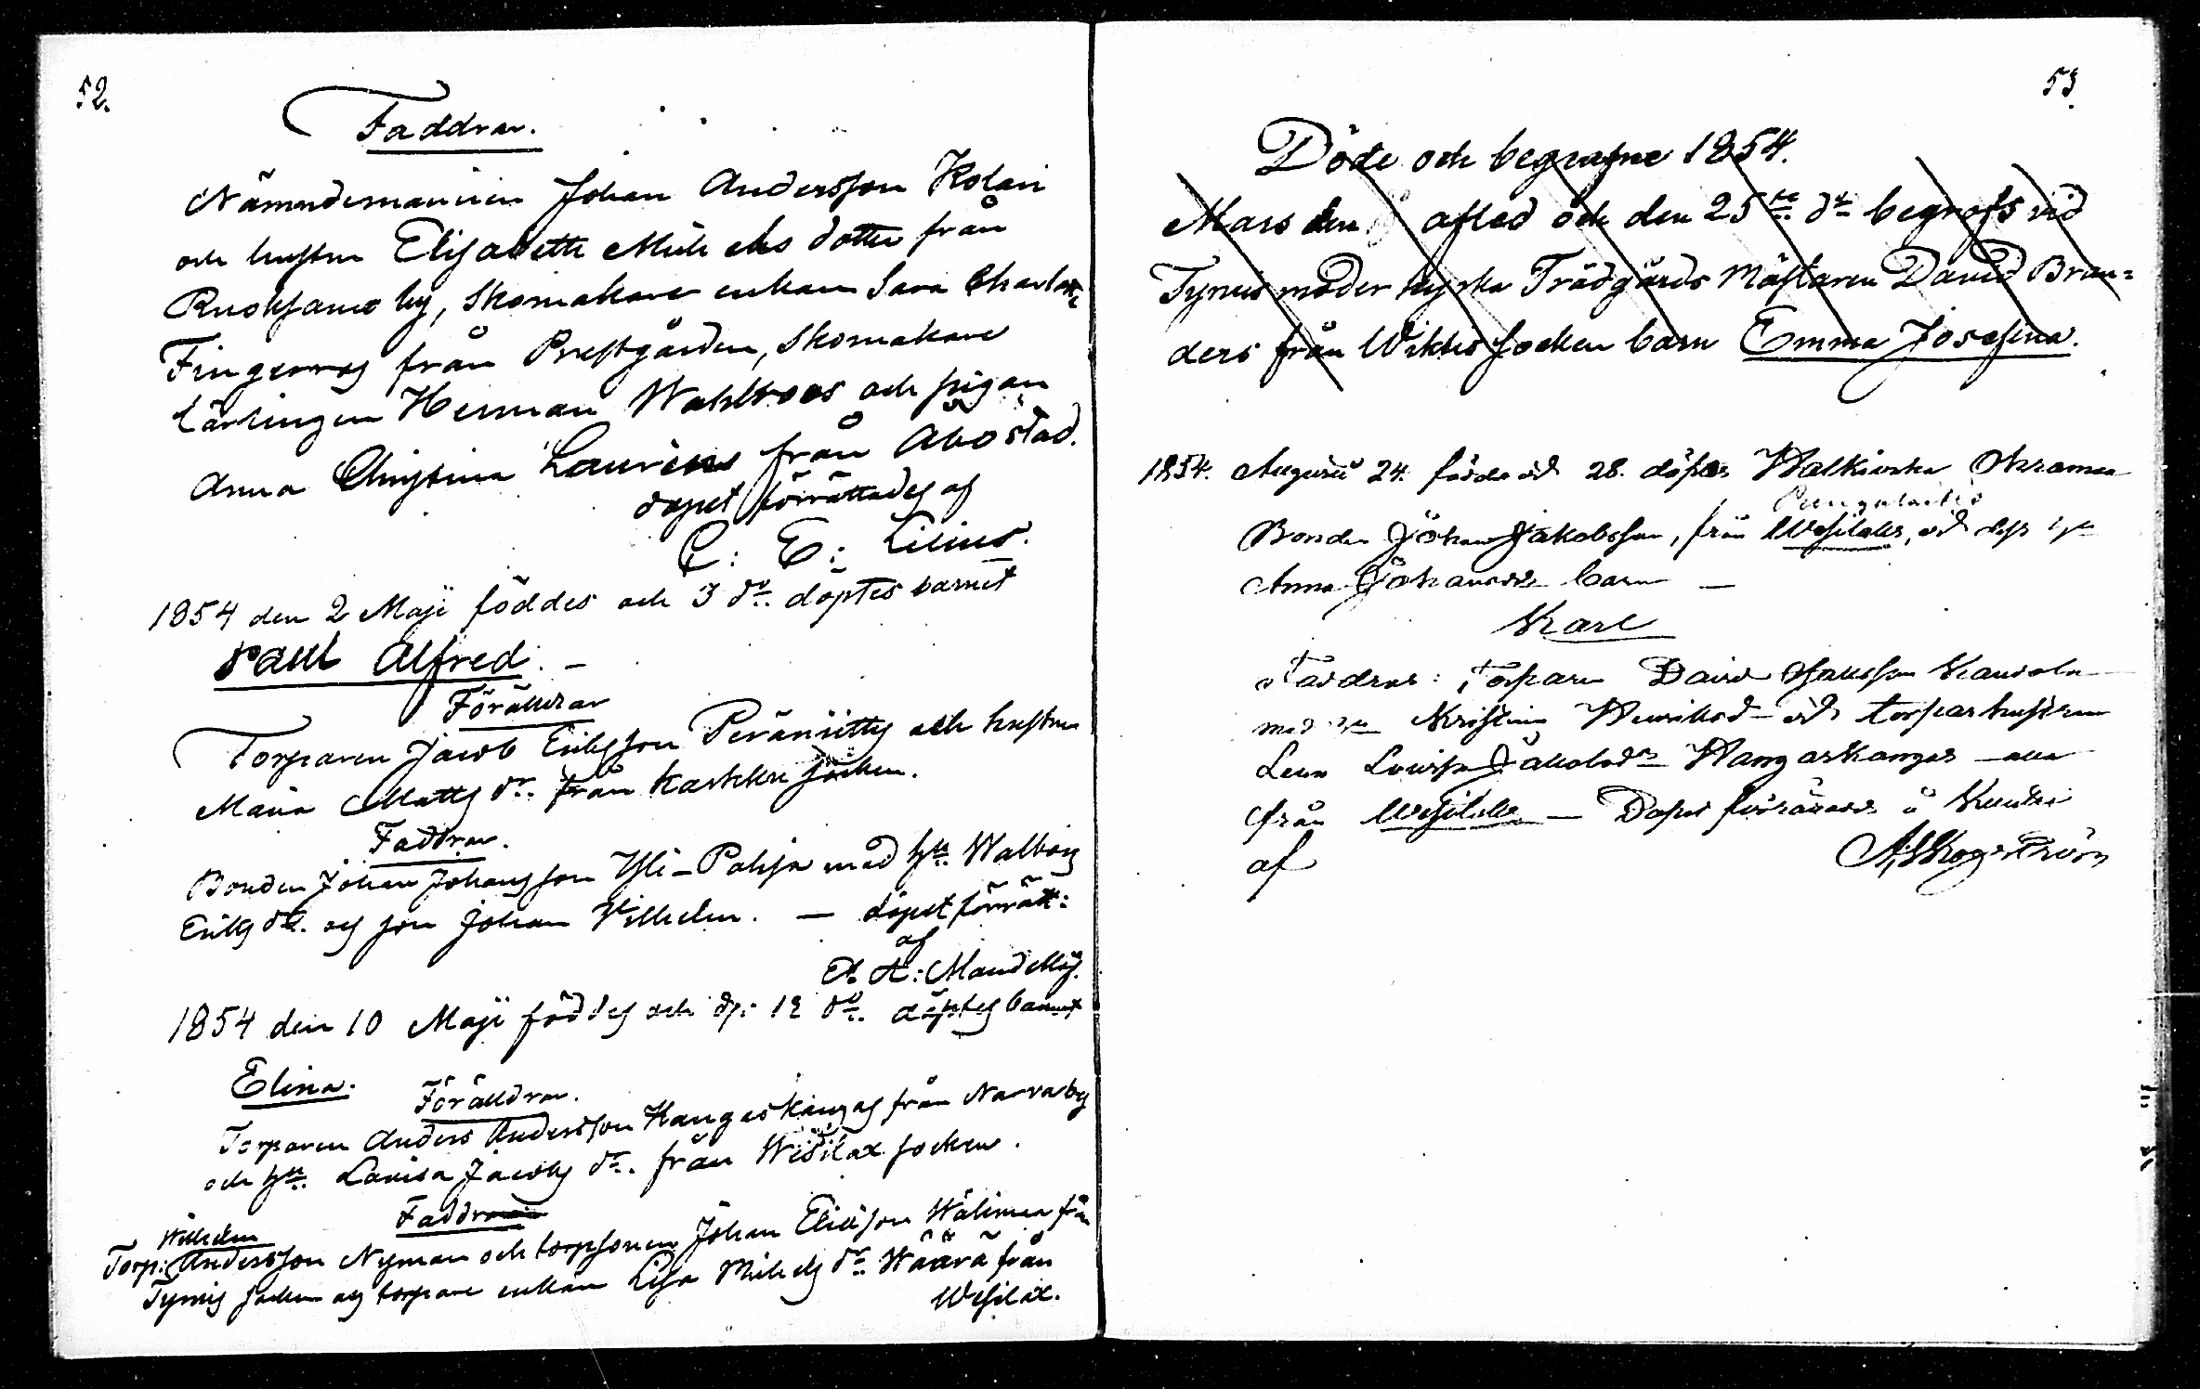 52.
Faddrar.
Nämndemannen Johan Andersson Kolari
och hustru Elisabeth Michels dotter från
Ruoksamo by, Skomakare enkan Sara Charlotta
Fingerroos från Prestgården, Skomakare
lärlingen Herman Wahlroos och pigan
Anna Christina Laurens från Åbo stad.
dopet förrättades af
C: E: Lilius.
1854 den 2 Maji föddes och 3 do. döptes barnet
Paul Alfred. –
Föräldrar
Torparen Jacob Eriksson Peräniitty och hustru
Maria Matts dr. från Karkku socken.
Faddrar.
Bonden Johan Johansson Yli-Pohja med hu. Walborg
Eriks dr. och son Johan Vilhelm. — dopet förrätt:
af
A: Mandellöf.
1854 den 10 Maji föddes och d: 12 do. döptes barnet
Elina.
Föräldrar.
Torparen Anders Andersson Kangaskangas från Narva by
och hu. Lovisa Jacobs dr. från Wesilax socken.
Faddrar
Wilhelm
Torp: Andersson Nyman och torpsonen Johan Eliasson Wälimaa från
Tyrvis socken och torpare enkan Lisa Michels dr. Määrä från
Wesilax.
53.
Döde och begrafne 1854.
Mars den afled och den 25te do begrofs vid
Tyrvis moder kyrka Trädgårds Mästaren David Bran-
ders från Wiktis socken barn Emma Josefina.
1854. Augusti 24. födde och 28. döptes
Bonden Johan Jakobsson, från Wesilaks, och dess
Anna Johansdr barn —
Karl
Faddrar: Torparn David
med Kristina och torparhustrun
Lena Lovisa Jakobsdr Kangaskangas alla
från Wesilaks — Dopet förrättades å
af